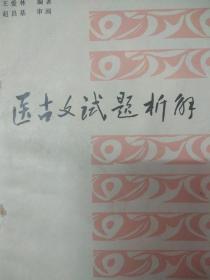 王爱林 编著
赵昌基 审阅
医古文试题析解